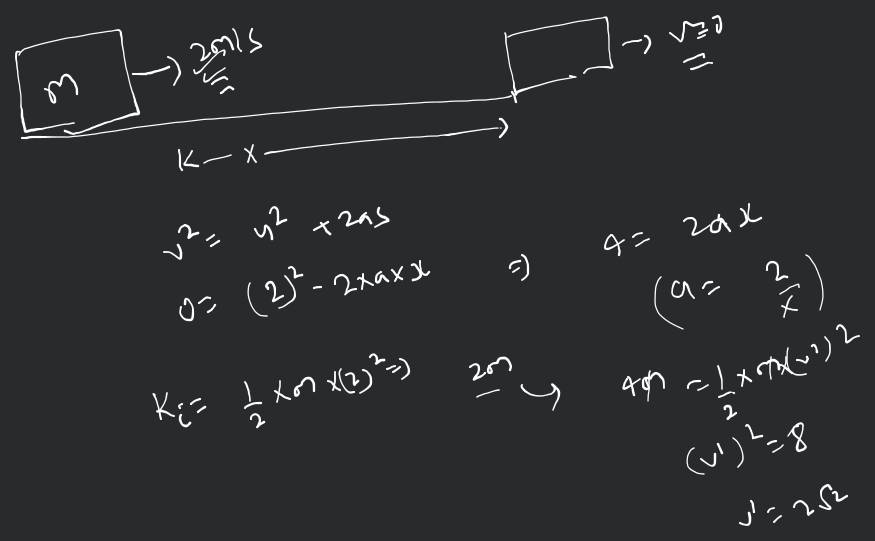 m → 2m/s → v=0
K— x —→
v² = u² + 2as
0 = (2)² - 2×a×x ⇒ 4 = 2ax
(a = 2/x)
Ki = 1/2 × m × (2)² ⇒ 2m
4m = 1/2 × m × (v')²
(v')² = 8
v' = 2√2